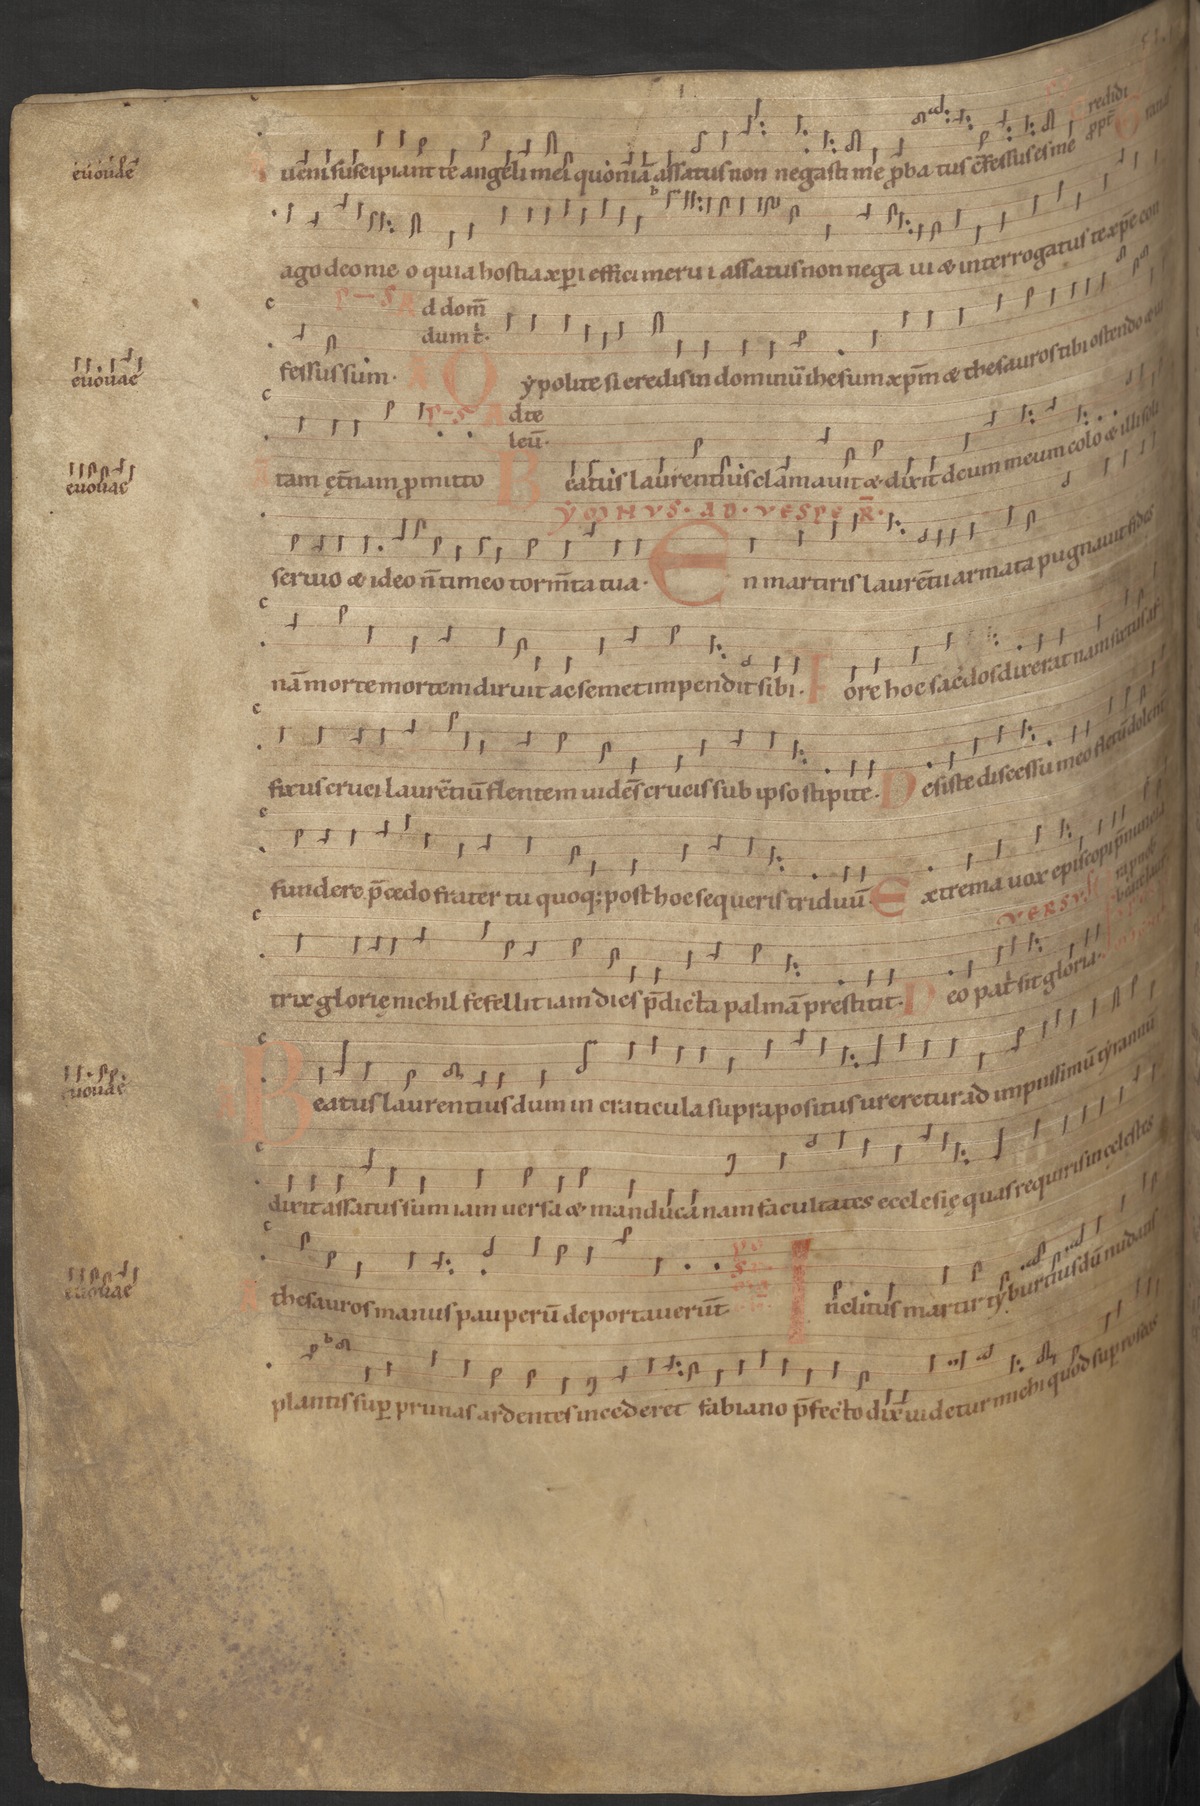 euouae uem suscipiant te angeli mei quoniā assatus non negasti me ꝓba tus cfessus es me redidi ꝓpt̄
ago deo me o quia hostia xp̄i effici meru i assatus non nega ui & interrogatus te xp̄e con
P-S A d dom̄
dum t̄.
euouae fessus sum. Y polite si credis in dominū ihesum xp̄m & thesauros tibi ostendo & ui
P-S A d te
leū.
euouae tam ęt̄nam ꝓmitto B eatus laurentius clamauit & dixit deum meum colo & illi soli
YMNVS. AD. VESPE R̄.
seruo & ideo n̄ timeo torm̄ta tua. E n martiris laurētii armata pugnauit fides
nā morte mortem diruit ac semet impendit sibi. F ore hoc sac̄dos dixerat nam sixtus
fixus cruci laurētiū flentem uidēs crucis sub ipso stipite. D esiste discessu meo fletū dolent̄
fundere p̄cedo frater tu quoq; post hoc sequeris triduū E xtrema uox episcopi p̄nuncia
VERSVS
trix glorię nichil fefellit iam dies p̄dicta palmā prestitit. D eo pat̄ sit gloria.
euouae B eatus laurentius dum in craticula supra positus ureretur ad impiissimū tyrannū
dixit assatus sum iam uersa & manduca nam facultates ecclesię quas requiris in cęlestes
euouae thesauros manus pauperū deportauerūt I nclitus martir tyburtius dū nudatis
plantis suꝑ prunas ardentes incederet fabiano p̄fecto dix̄ uidetur michi quod suꝑ roseos